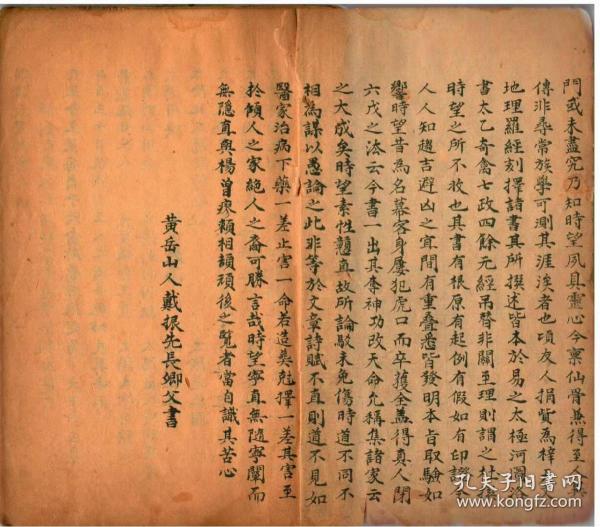 門或未盡究乃知時望夙具靈心今稟仙骨兼得至人
傳非尋常族學可測其涯涘者也頃友人捐貲為梓
地理羅經刻擇諸書其所撰述皆本於易之太極河圖洛
書太乙奇禽七政四餘元經吊替非關至理則謂之杜撰
時望之所不收也其書有根原有起例有假如有印證令
人人知趨吉避凶之宜間有重疊悉皆發明本旨取驗如
響時望昔為名幕客身屢犯虎口而卒獲全盖得真人閉
六戊之法云今書一出其奪神功改天命允稱集諸家
之大成矣時望素性戇直故所論歇未免傷時道不同不
相為謀以愚論之此非等於文章詩賦不直則道不見如
醫家治病下藥一差止害一命若造葵尅擇一差其害至
扵傾人之家絕人之裔可勝言哉時望寧直無隨寧闡而
無隐直與楊曾廖頼相頡頏後之覽者當自識其苦心
黄岳山人戴振先長卿父書
孔夫子旧书网
kongfz.com